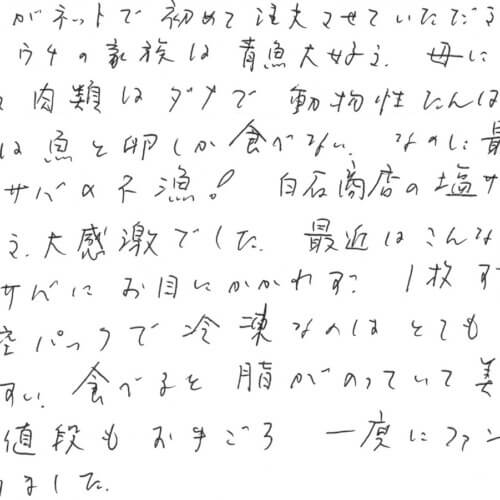 がネットで初めて注文させていただき
ウチの家族は青魚大好き。母に
肉類はダメで動物性たんぱ
は魚と卵しか食べない。なのに最
サバの不漁！白石商店の塩サ
う。大感激でした。最近はこんな
サバにお目にかかれず？1枚ず
空パックで冷凍なのはとても
すい。食べると脂がのっていて美
値段もお手ごろ 一度にファン
ました。